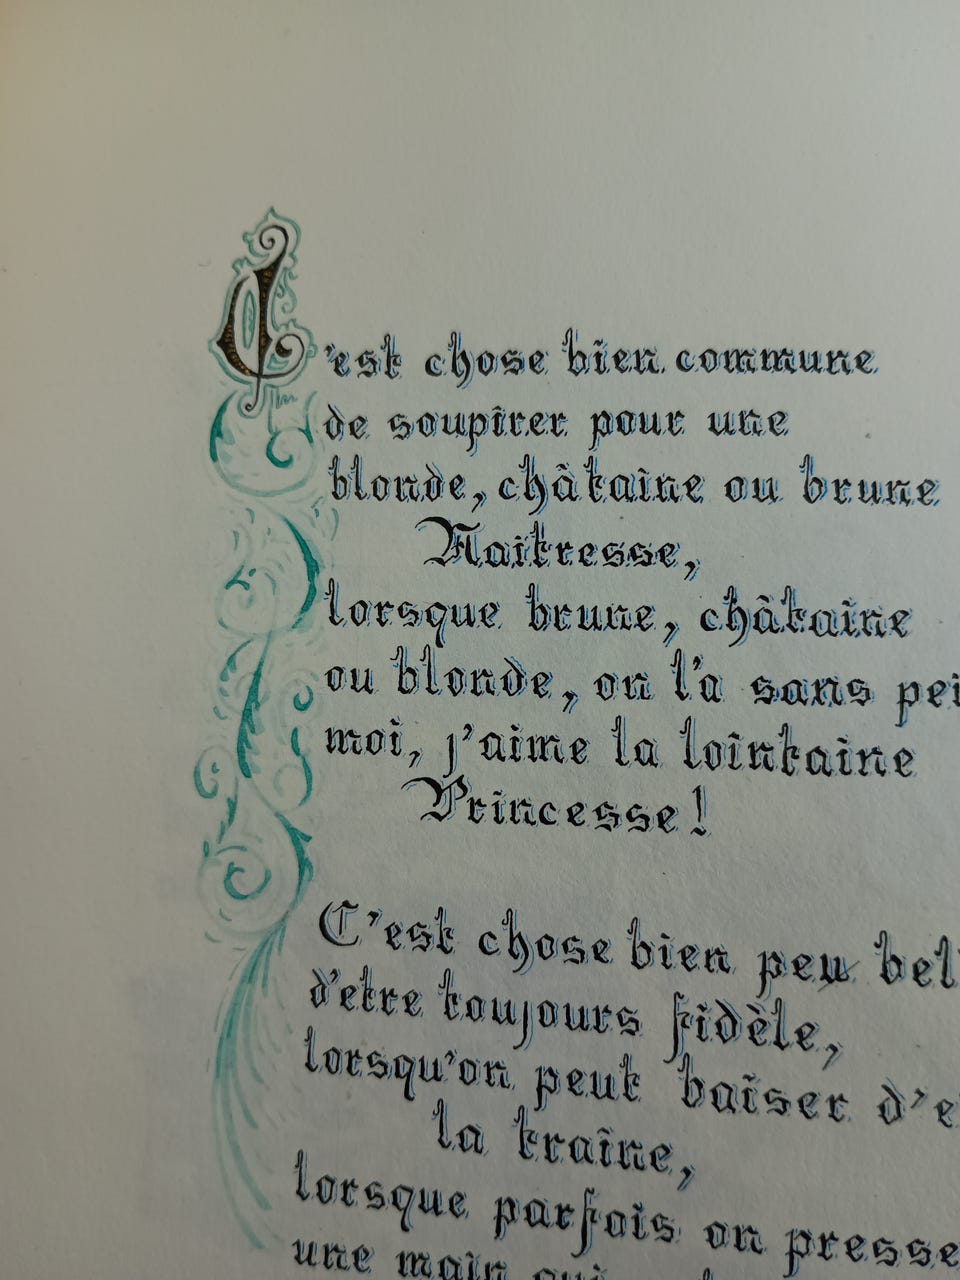 C'est chose bien commune
de soupirer pour une
blonde, châtaine ou brune
Maitresse,
lorsque brune, châtaine
ou blonde, on l'a sans pei
moi, j'aime la lointaine
Princesse!
C'est chose bien peu bel
d'etre toujours fidèle,
lorsqu'on peut baiser d'e
la traîne,
lorsque parfois on presse
une main qui